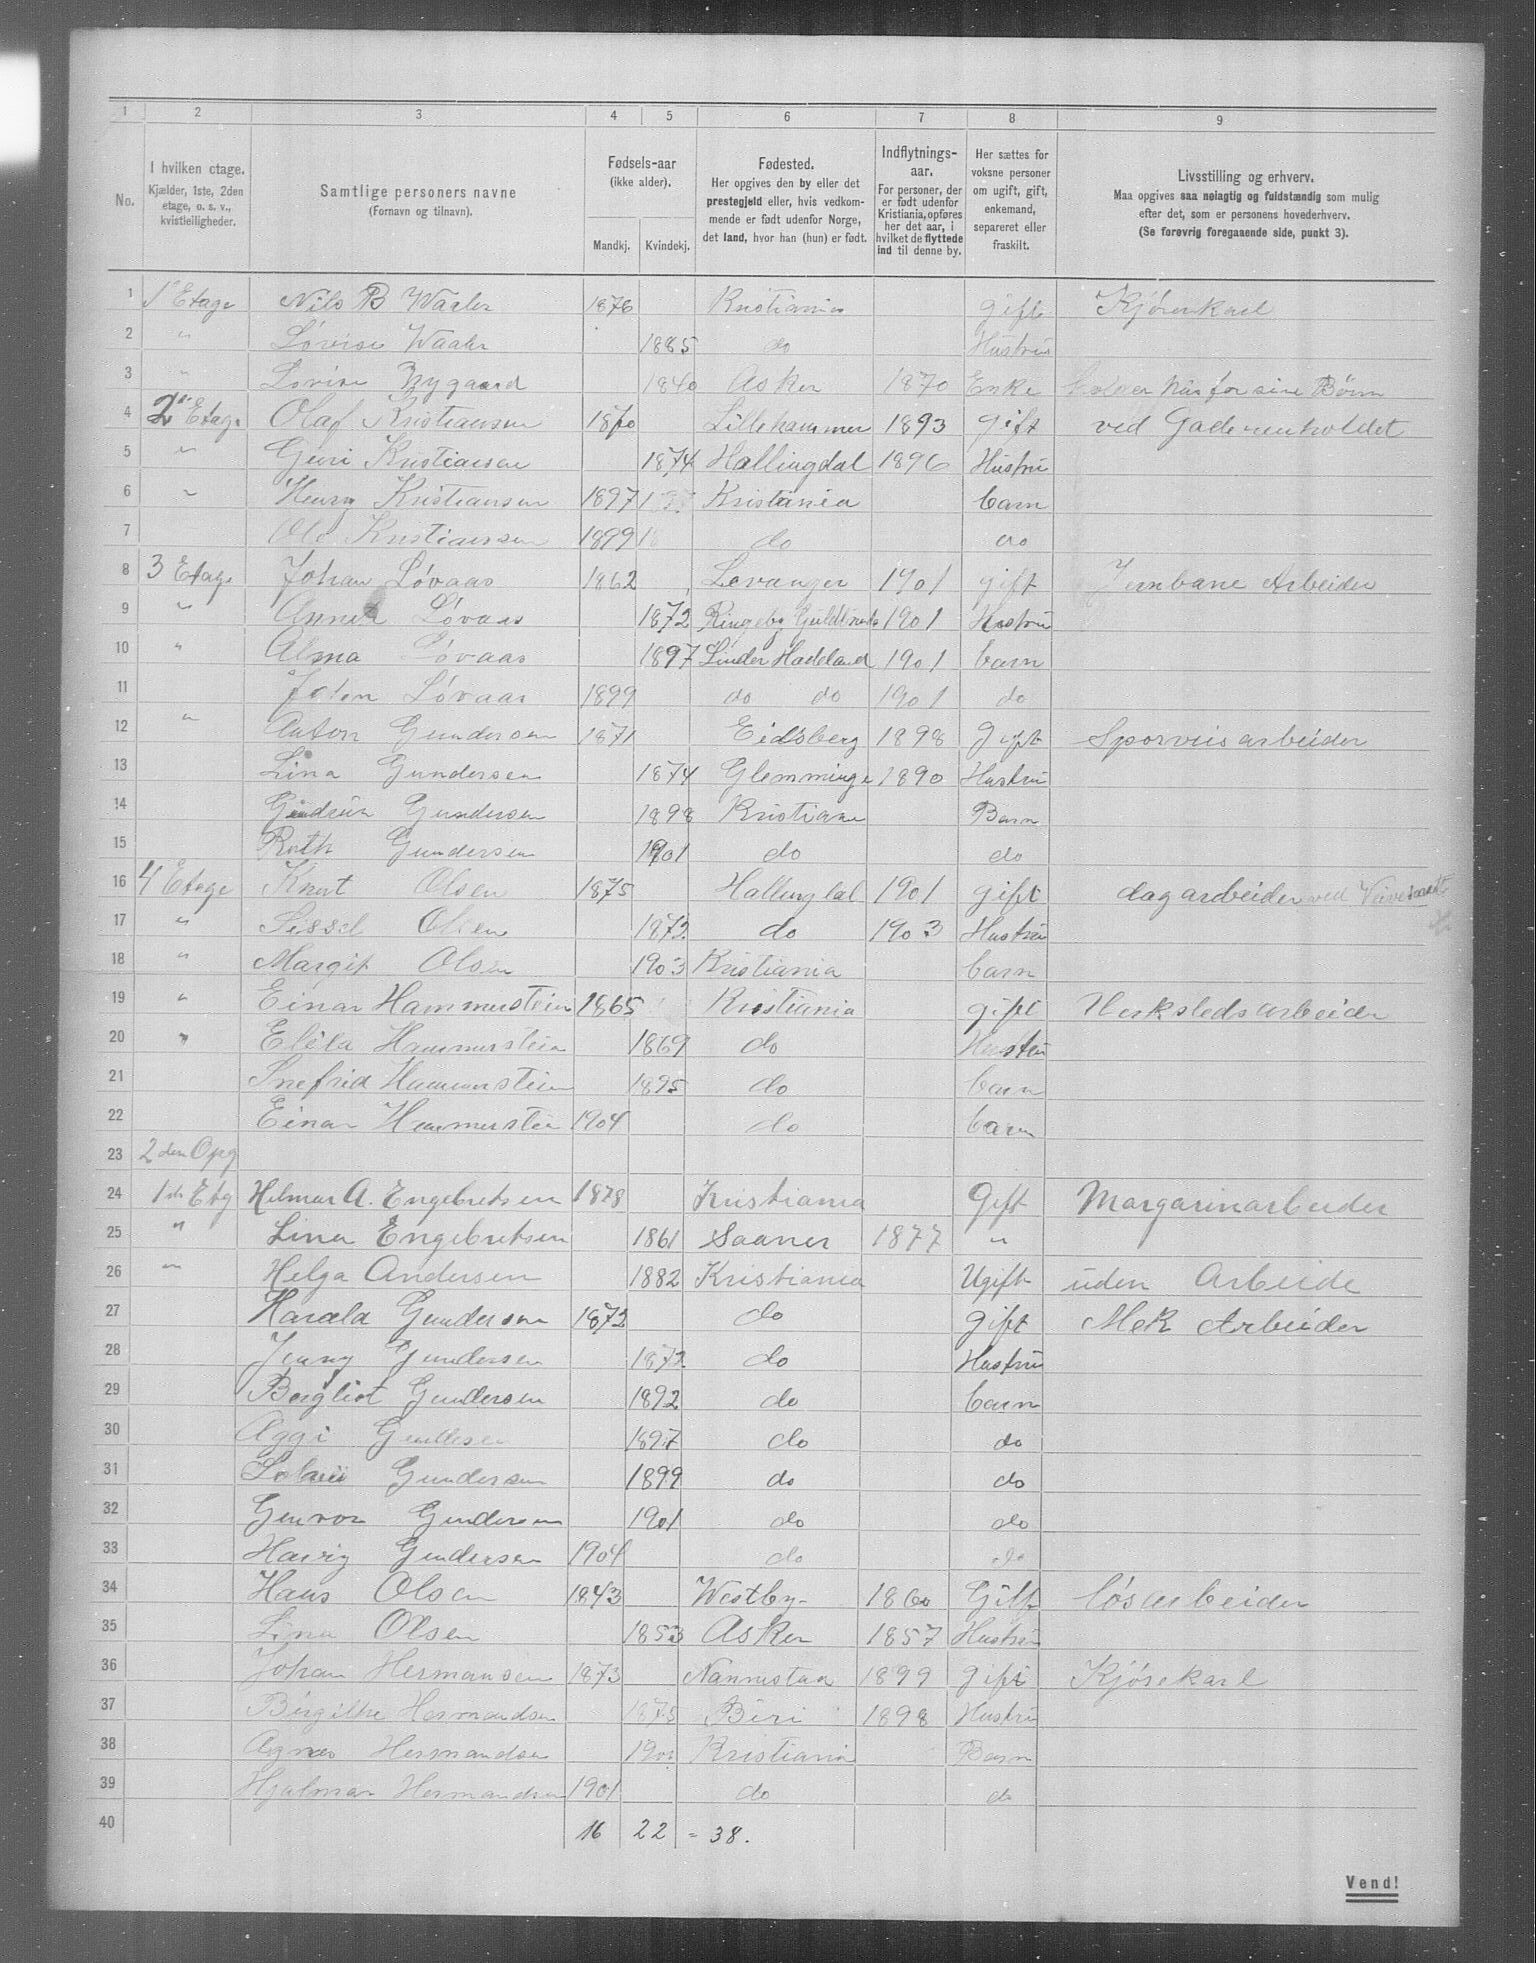 1 2 3 4 5 6 7 8 9
No.
I hvilken etage.
Kjælder, 1ste, 2den
etage, o. s. v.,
kvistleiligheder.
Samtlige personers navne
(Fornavn og tilnavn).
Fødsels-aar
(ikke alder).
Mandkj. Kvindekj.
Fødested.
Her opgives den by eller det
prestegjeld eller, hvis vedkom-
mende er født udenfor Norge,
det land, hvor han (hun) er født.
Indflytnings-
aar.
For personer, der
er født udenfor
Kristiania, opføres
her det aar, i
hvilket de flyttede
ind til denne by.
Her sættes for
voksne personer
om ugift, gift,
enkemand,
separeret eller
fraskilt.
Livsstilling og erhverv.
Maa opgives saa nøiagtig og fuldstændig som mulig
efter det, som er personens hovederhverv.
(Se forøvrig foregaaende side, punkt 3).
1 1' Etage Nils B Waaler 1876 Kristiania gift Kjørerkarl
2 " Lovise Waaler 1885 do Hustru
3 " Lovise Nygaard 1840 Asker 1870 Enke holder hus for sine Børn
4 2' Etage Olaf Kristiansen 1870 Lillehammer 1893 gift ved Gaderenholdet
5 " Guri Kristiansen 1874 Hallingdal 1896 Hustru
6 " Henry Kristiansen 1897 Kristiania barn
7 Ole Kristiansen 1899 do do
8 3 Etage Johan Løvaas 1862 Levanger 1901 gift Jernbane Arbeider
9 " Anna Løvaas 1872 Ringebu 1901 Hustru
10 " Alma Løvaas 1897 Hadeland 1901 barn
11 Løvaas 1899 do do 1901 do
12 " Anton Gundersen 1871 Eidsberg 1898 gift Sporveisarbeider
13 Lina Gundersen 1874 Glemminge 1890 Hustru
14 Gudrun Gundersen 1898 Kristiania Barn
15 Ruth Gundersen 1901 do do
16 4 Etage Knut Olsen 1875 Hallingdal 1901 gift dagarbeider ved
17 " Sissel Olsen 1872 do 1903 Hustru
18 " Margit Olsen 1903 Kristiania barn
19 " Einar Hammerstein 1865 Kristiania gift Verkstedsarbeider
20 " Hammerstein 1869 do Hustru
21 Snefrid Hammerstein 1895 do barn
22 Einar Hammerstein 1904 do barn
23 2den Opg
24 1ste Etg Hilmar A. Engebretsen 1878 Kristiania Gift Margarinarbeider
25 " Lina Engebretsen 1861 Saaner 1877 "
26 " Helga Andersen 1882 Kristiania Ugift uden Arbeide
27 Harald Gundersen 1872 do gift Mek Arbeider
28 Jenny Gundersen 1872 do Hustru
29 Bergliot Gundersen 1892 do barn
30 Aggi Gundersen 1897 do do
31 Gundersen 1899 do do
32 Gunvor Gundersen 1901 do do
33 Harry Gundersen 1904 do do
34 Hans Olsen 1843 Westby 1860 Gift løsarbeider
35 Lina Olsen 1853 Asker 1857 Hustru
36 Johan Hermansen 1873 Nannestad 1899 gift Kjørekarl
37 Birgithe Hermandsen 1875 Biri 1898 Hustru
38 Agnes Hermandsen Kristiania Barn
39 Hjalmar Hermandsen 1901 do do
40 16 22 = 38.
Vend!